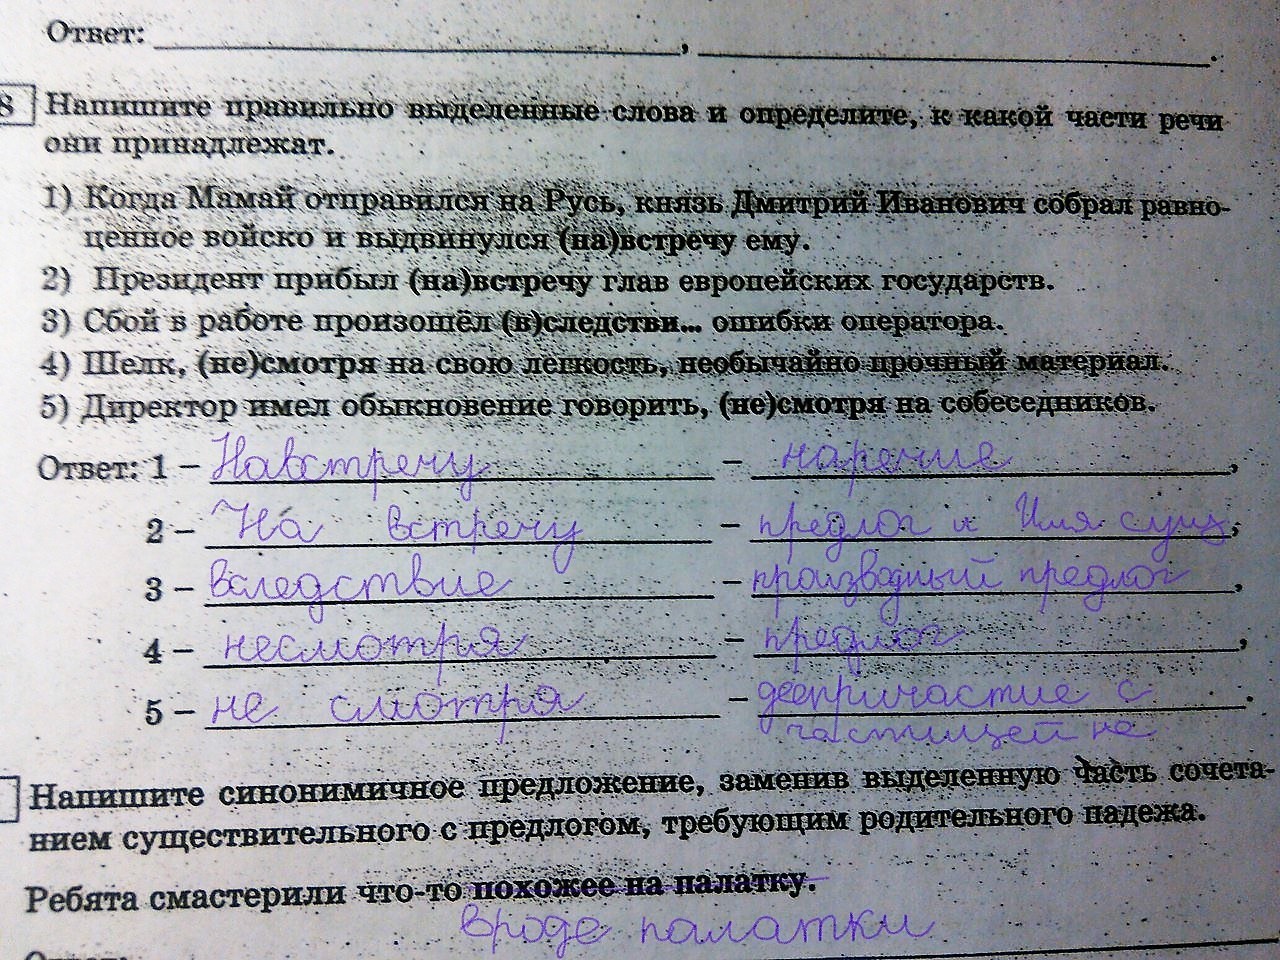 Ответ: ____________, ____________.
8 Напишите правильно выделенные слова и определите, к какой части речи
они принадлежат.
1) Когда Мамай отправился на Русь, князь Дмитрий Иванович собрал равно-
ценное войско и выдвинулся (на)встречу ему.
2) Президент прибыл (на)встречу глав европейских государств.
3) Сбой в работе произошёл (в)следстви... ошибки оператора.
4) Шелк, (не)смотря на свою легкость, необычайно прочный материал.
5) Директор имел обыкновение говорить, (не)смотря на собеседников.
Ответ: 1 – Навстречу – наречие,
2 – На встречу – предлог и Имя сущ,
3 – вследствие – производный предлог,
4 – несмотря – предлог,
5 – не смотря – деепричастие с
частицей не.
Напишите синонимичное предложение, заменив выделенную часть сочета-
нием существительного с предлогом, требующим родительного падежа.
Ребята смастерили что-то похожее на палатку.
вроде палатки
Ответ: